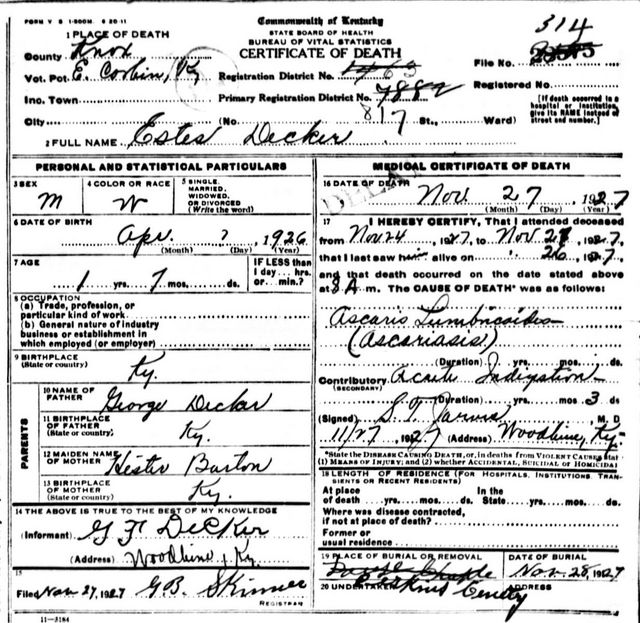 FORM V S 1-500M. 6 20-11
Commonwealth of Kentucky
STATE BOARD OF HEALTH
BUREAU OF VITAL STATISTICS
CERTIFICATE OF DEATH
314
1 PLACE OF DEATH
County Knox
Vot. Pct. E. Corbin, Ky
Inc. Town
City (No St., Ward)
Registration District No.
Primary Registration District No. 7882
817
File No.
Registered No.
[If death occurred in a hospital or institution, give its NAME instead of street and number.]
2 FULL NAME Estes Decker
PERSONAL AND STATISTICAL PARTICULARS
3 SEX M
4 COLOR OR RACE W
5 SINGLE, MARRIED, WIDOWED, OR DIVORCED (Write the word)
6 DATE OF BIRTH
Apr. ? , 1926
(Month) (Day) (Year)
7 AGE
1 yrs. 7 mos. ds.
IF LESS than 1 day... hrs. or ... min.?
8 OCCUPATION
(a) Trade, profession, or particular kind of work
(b) General nature of industry business or establishment in which employed (or employer)
9 BIRTHPLACE (State or country) Ky.
PARENTS
10 NAME OF FATHER George Decker
11 BIRTHPLACE OF FATHER (State or country) Ky.
12 MAIDEN NAME OF MOTHER Hester Barton
13 BIRTHPLACE OF MOTHER (State or country) Ky.
14 THE ABOVE IS TRUE TO THE BEST OF MY KNOWLEDGE
(Informant) G F Decker
(Address) Woodbine, Ky
15
Filed Nov 27, 1927 G.B. Skinner
REGISTRAR
11-3184
MEDICAL CERTIFICATE OF DEATH
16 DATE OF DEATH Nov 27, 1927
(Month) (Day) (Year)
17 I HEREBY CERTIFY, That I attended deceased
from Nov 24, 1927, to Nov 27, 1927,
that I last saw him alive on " 26, 1927,
and that death occurred on the date stated above
at 8 A. m. The CAUSE OF DEATH* was as follows:
Ascaris Lumbricoides
(Ascariasis)
(Duration) yrs. mos. ds
Contributory Acute Indigestion
(SECONDARY)
(Duration) yrs. mos. 3 ds
(Signed) S.T. Jarvis M. D
11/27 1927 (Address) Woodbine, Ky.
*State the DISEASE CAUSING DEATH, or, in deaths from VIOLENT CAUSES stat
(1) MEANS OF INJURY; and (2) whether ACCIDENTAL, SUICIDAL or HOMICIDAL
18 LENGTH OF RESIDENCE (FOR HOSPITALS, INSTITUTIONS, TRANSIENTS OR RECENT RESIDENTS)
At place of death yrs. mos. ds. In the State yrs. mos. ds
Where was disease contracted, if not at place of death?
Former or usual residence
19 PLACE OF BURIAL OR REMOVAL
DATE OF BURIAL
Nov. 28, 1927
20 UNDERTAKER
ADDRESS